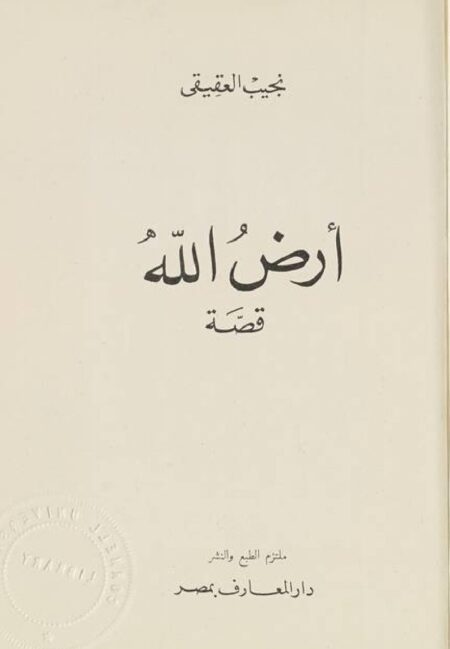 نجيب العقيقى
أرضُ اللّهُ
قصّة
ملتزم الطبع والنشر
دار المعارف بمصر